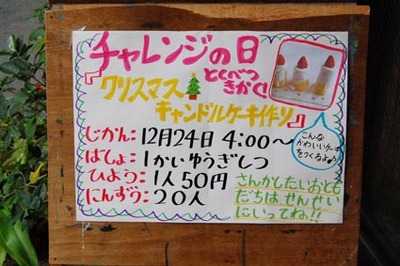 チャレンジの日
とくべつ
きかく!
『クリスマス
キャンドルケーキ作り』
じかん：12月24日 4:00～
ばしょ：1かいゆうぎしつ
ひよう：1人50円
にんずう：20人
こんな
かわいいケーキ
をつくるよ♪
さんかしたいおとも
だちは せんせい
にいってね!!